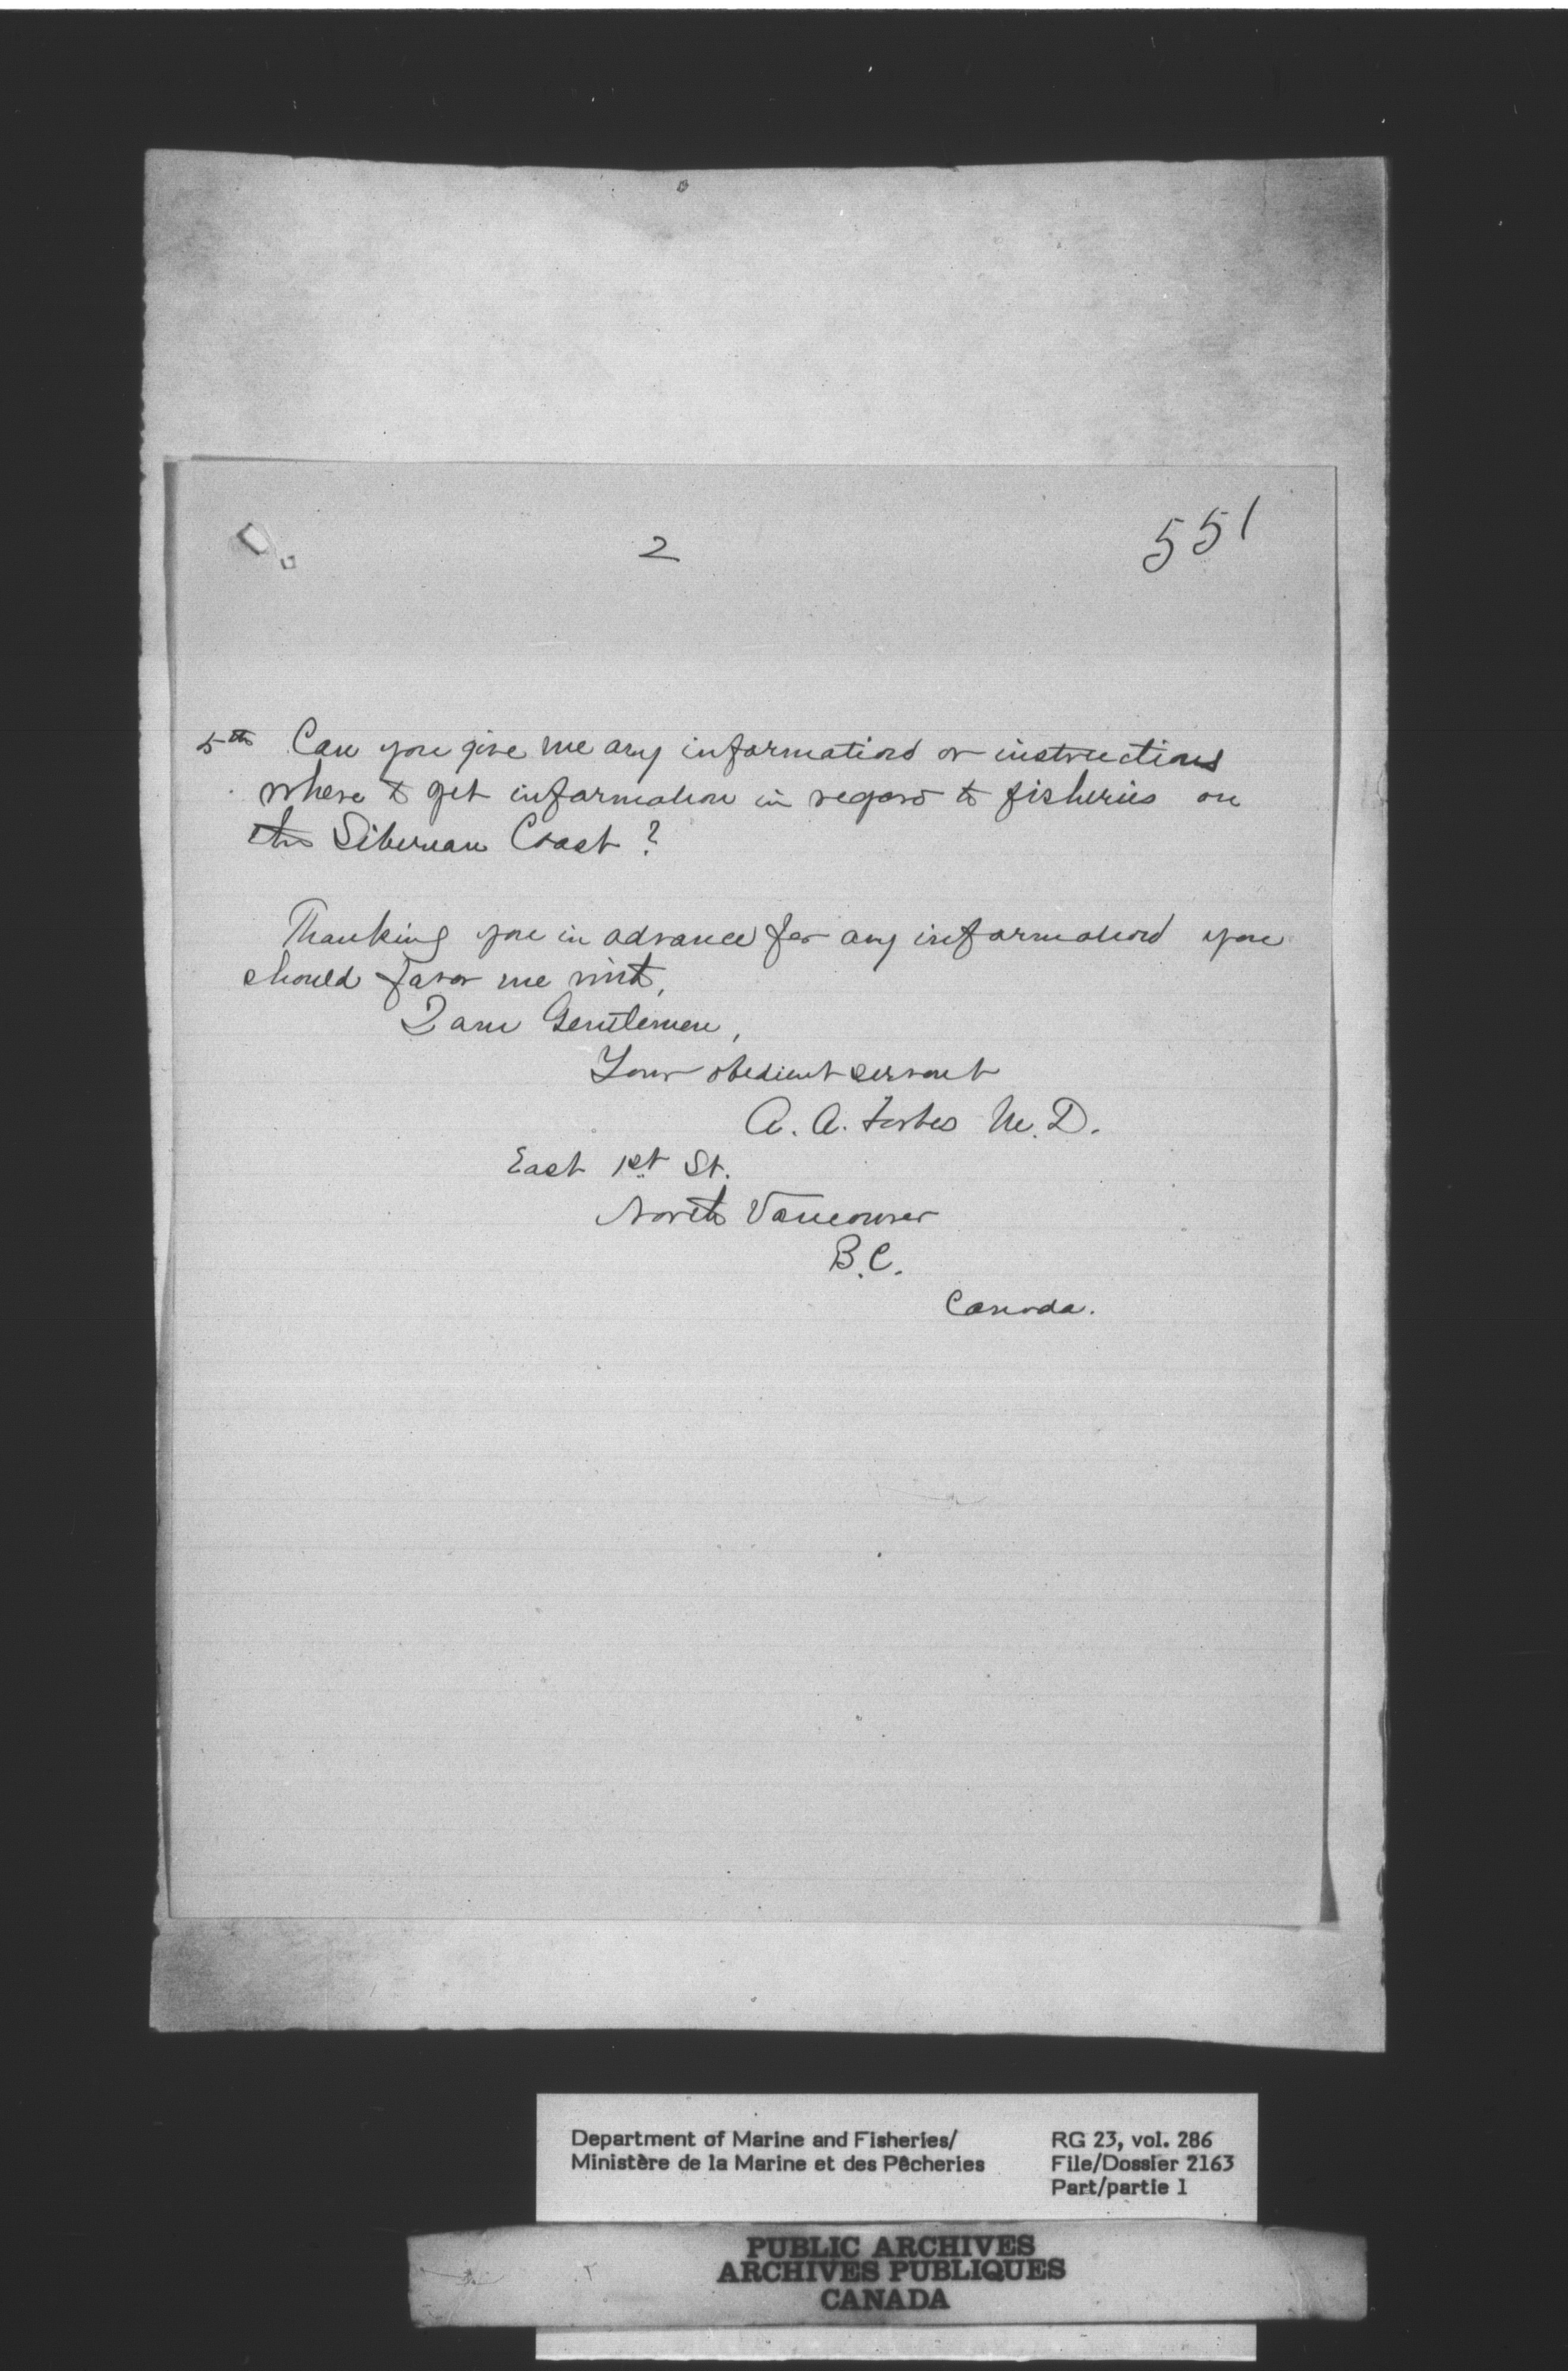 2
551
5th Can you give me any information or instructions
where to get information in regard to fisheries on
the Siberian Coast ?
Thanking you in advance for any information you
should favor me with,
I am Gentlemen,
Your obedient servant
A. A. Forbes M. D.
East 1st St.
North Vancouver
B. C.
Canada.
Department of Marine and Fisheries/
Ministère de la Marine et des Pêcheries
RG 23, vol. 286
File/Dossier 2163
Part/partie 1
PUBLIC ARCHIVES
ARCHIVES PUBLIQUES
CANADA